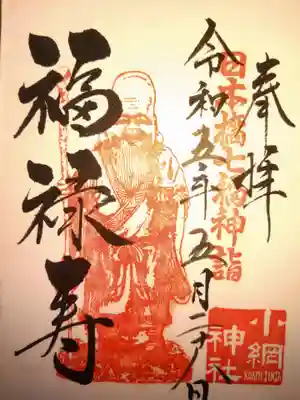 奉拝
日本橋七福神詣
令和五年五月二十八日
福禄寿
小網
神社
KOAMI JINJA